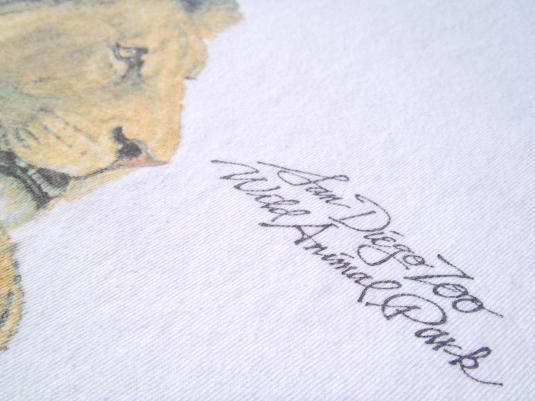 San Diego Zoo
Wild Animal Park